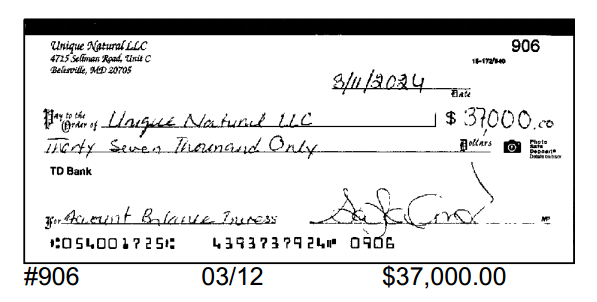 Unique Natural LLC
4715 Sellman Road, Unit C
Beltsville, MD 20705
906
15-172/540
3/11/2024
Date
Pay to the
Order of Unique Natural LLC $ 37,000.00
Thirty Seven Thousand Only Dollars
Photo
Safe
Deposit®
Details on back
TD Bank
For Account Balance
MP
⑆054001725⑆ 4393737924⑈ 0906
#906 03/12 $37,000.00